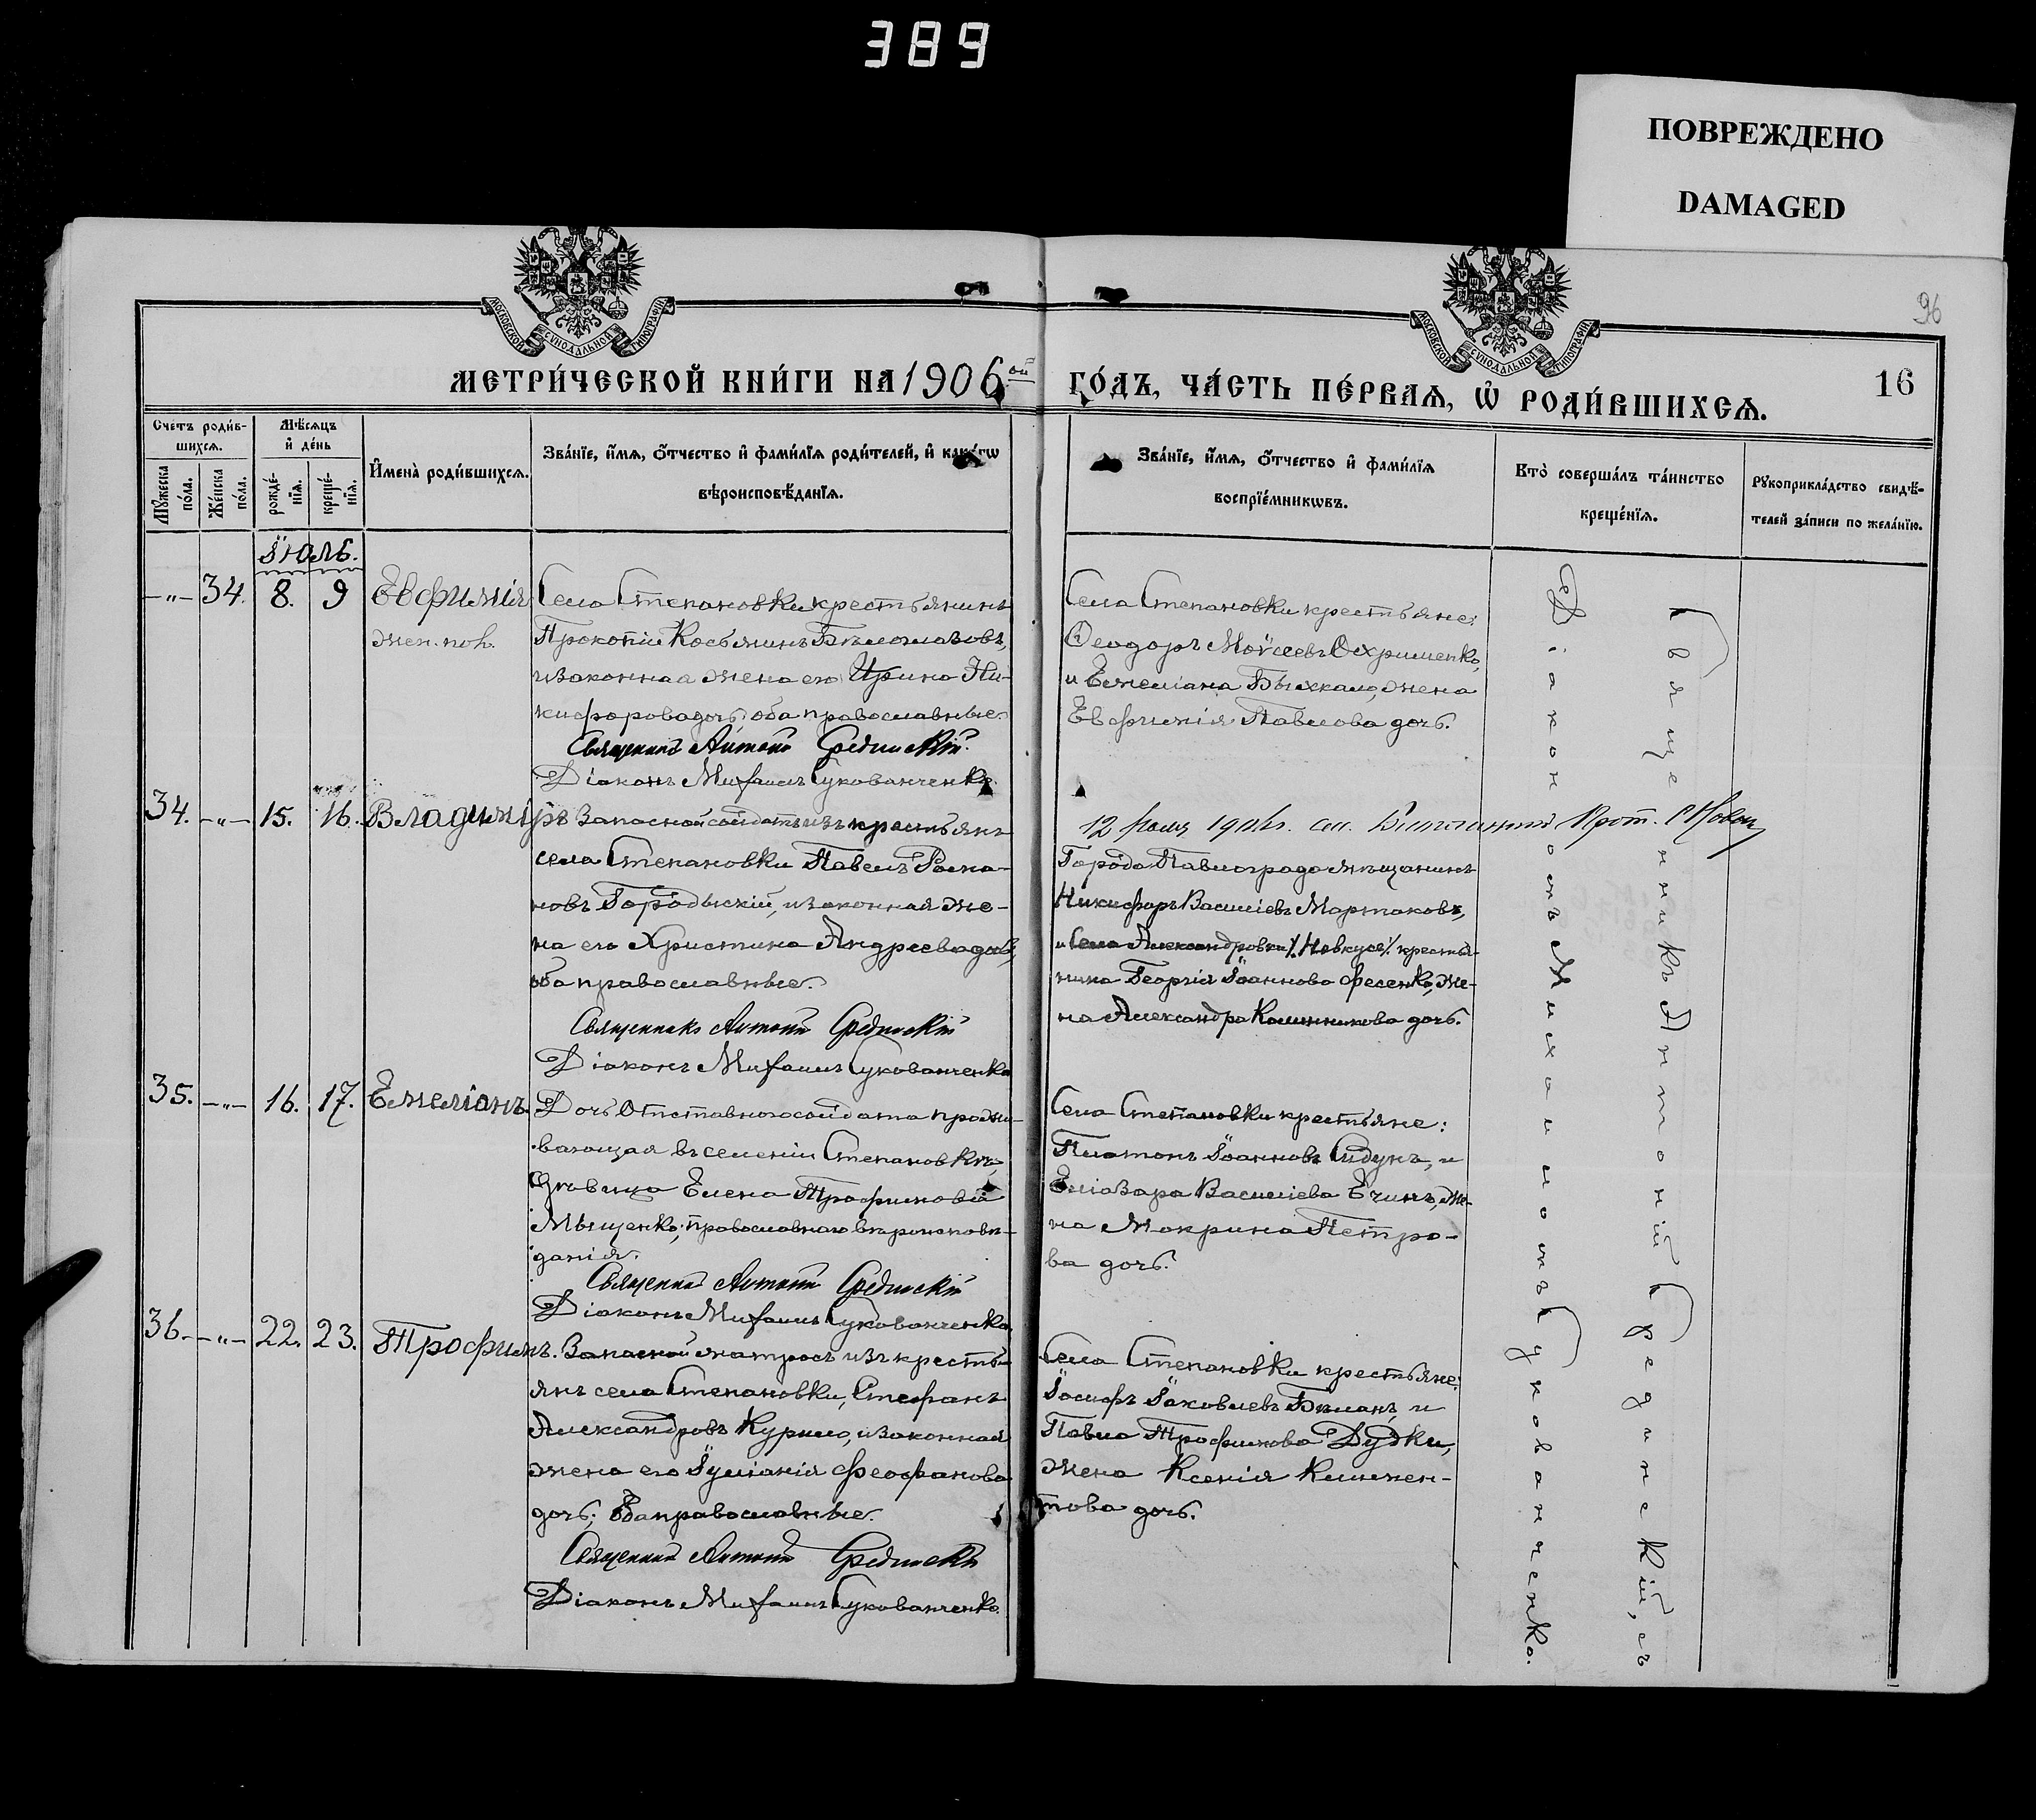 389
ПОВРЕЖДЕНО
DAMAGED
96
МОСКОВСКОЙ СѴНОДАЛЬНОЙ ТИПОГРАФІИ
МОСКОВСКОЙ СѴНОДАЛЬНОЙ ТИПОГРАФІИ
МЕТРИ́ЧЕСКОЙ КНИ́ГИ НА 1906ой ГО́ДЪ, ЧА́СТЬ ПЕ́РВАѦ, Ѡ҆ РОДИ́ВШИХСѦ.
16
Сче́тъ роди́в-
шихсѧ.
Мꙋ́жеска по́ла.
Же́нска по́ла.
Мѣ́сѧцъ
и҆ де́нь
рожде́-
нїѧ.
креще́-
нїѧ.
И҆мена̀ роди́вшихсѧ.
Зва́нїе, и҆́мѧ, ѻ҆́тчество и҆ фами́лїѧ роди́телей, и҆ како́гѡ
вѣроисповѣ́данїѧ.
Зва́нїе, и҆́мѧ, ѻ҆́тчество и҆ фами́лїѧ
воспрїе́мникѡвъ.
Кто̀ соверша́лъ та́инство
креще́нїѧ.
Рꙋкоприкла́дство свидѣ́-
телей за́писи по жела́нїю.
Іюль.
-"- 34. 8. 9 Евфимія
жен. пол.
Села Степановки крестьянинъ
Прокопій Косьминъ Бѣломазовъ,
и законная жена его Ирина Ни-
кифорова дочь, оба православные.
Священникъ Антоній Срединскій.
Діаконъ Михаилъ Сукованченко.
Села Степановки крестьяне:
Ѳеодоръ Моѵсеевъ Охрименко,
и Емеліана Бычкало, жена
Евфимія Павлова дочь.
34. -"- 15. 16. Владиміръ
Запасной солдатъ изъ крестьянъ
села Степановки Павелъ Рома-
новъ Городыскій, и законная же-
на его Христина Андреева дочь,
оба православные.
Священникъ Антоній Срединскій
Діаконъ Михаилъ Сукованченко
12 Іюля 1906г. Прот.
Города Павлограда мѣщанинъ
Никифоръ Василіевъ Мартаковъ,
и Села Александровки /. Новкусъ ./ крестья-
нина Георгія Іоаннова Фесенко, же-
на Александра Калинникова дочь.
35. -"- 16. 17. Емеліанъ.
Дочь Отставного солдата прожи-
вающая въ селеніи Степановкѣ,
дѣвица Елена Трофимова
Мыщенко, православнаго вѣроисповѣ-
данія.
Священникъ Антоній Срединскій
Діаконъ Михаилъ Сукованченко
Села Степановки крестьяне:
Платонъ Іоанновъ Сидунъ, и
Еліазара Василіева Ечинъ, же-
на Макрина Петро-
ва дочь.
36. -"- 22. 23. Трофимъ.
Запасной матросъ изъ кресть-
янъ села Степановки, Стефанъ
Александровъ Курило, и законная
жена его Іуліанія Феофанова
дочь; оба православные.
Священникъ Антоній Срединскій
Діаконъ Михаилъ Сукованченко.
Села Степановки крестьяне:
Іосифъ Іаковлевъ Бѣланъ, и
Павла Трофимова Дудки,
жена Ксенія Климен-
това дочь.
Священникъ Антоній Срединскій, съ
Діакономъ Михаиломъ Сукованченко.